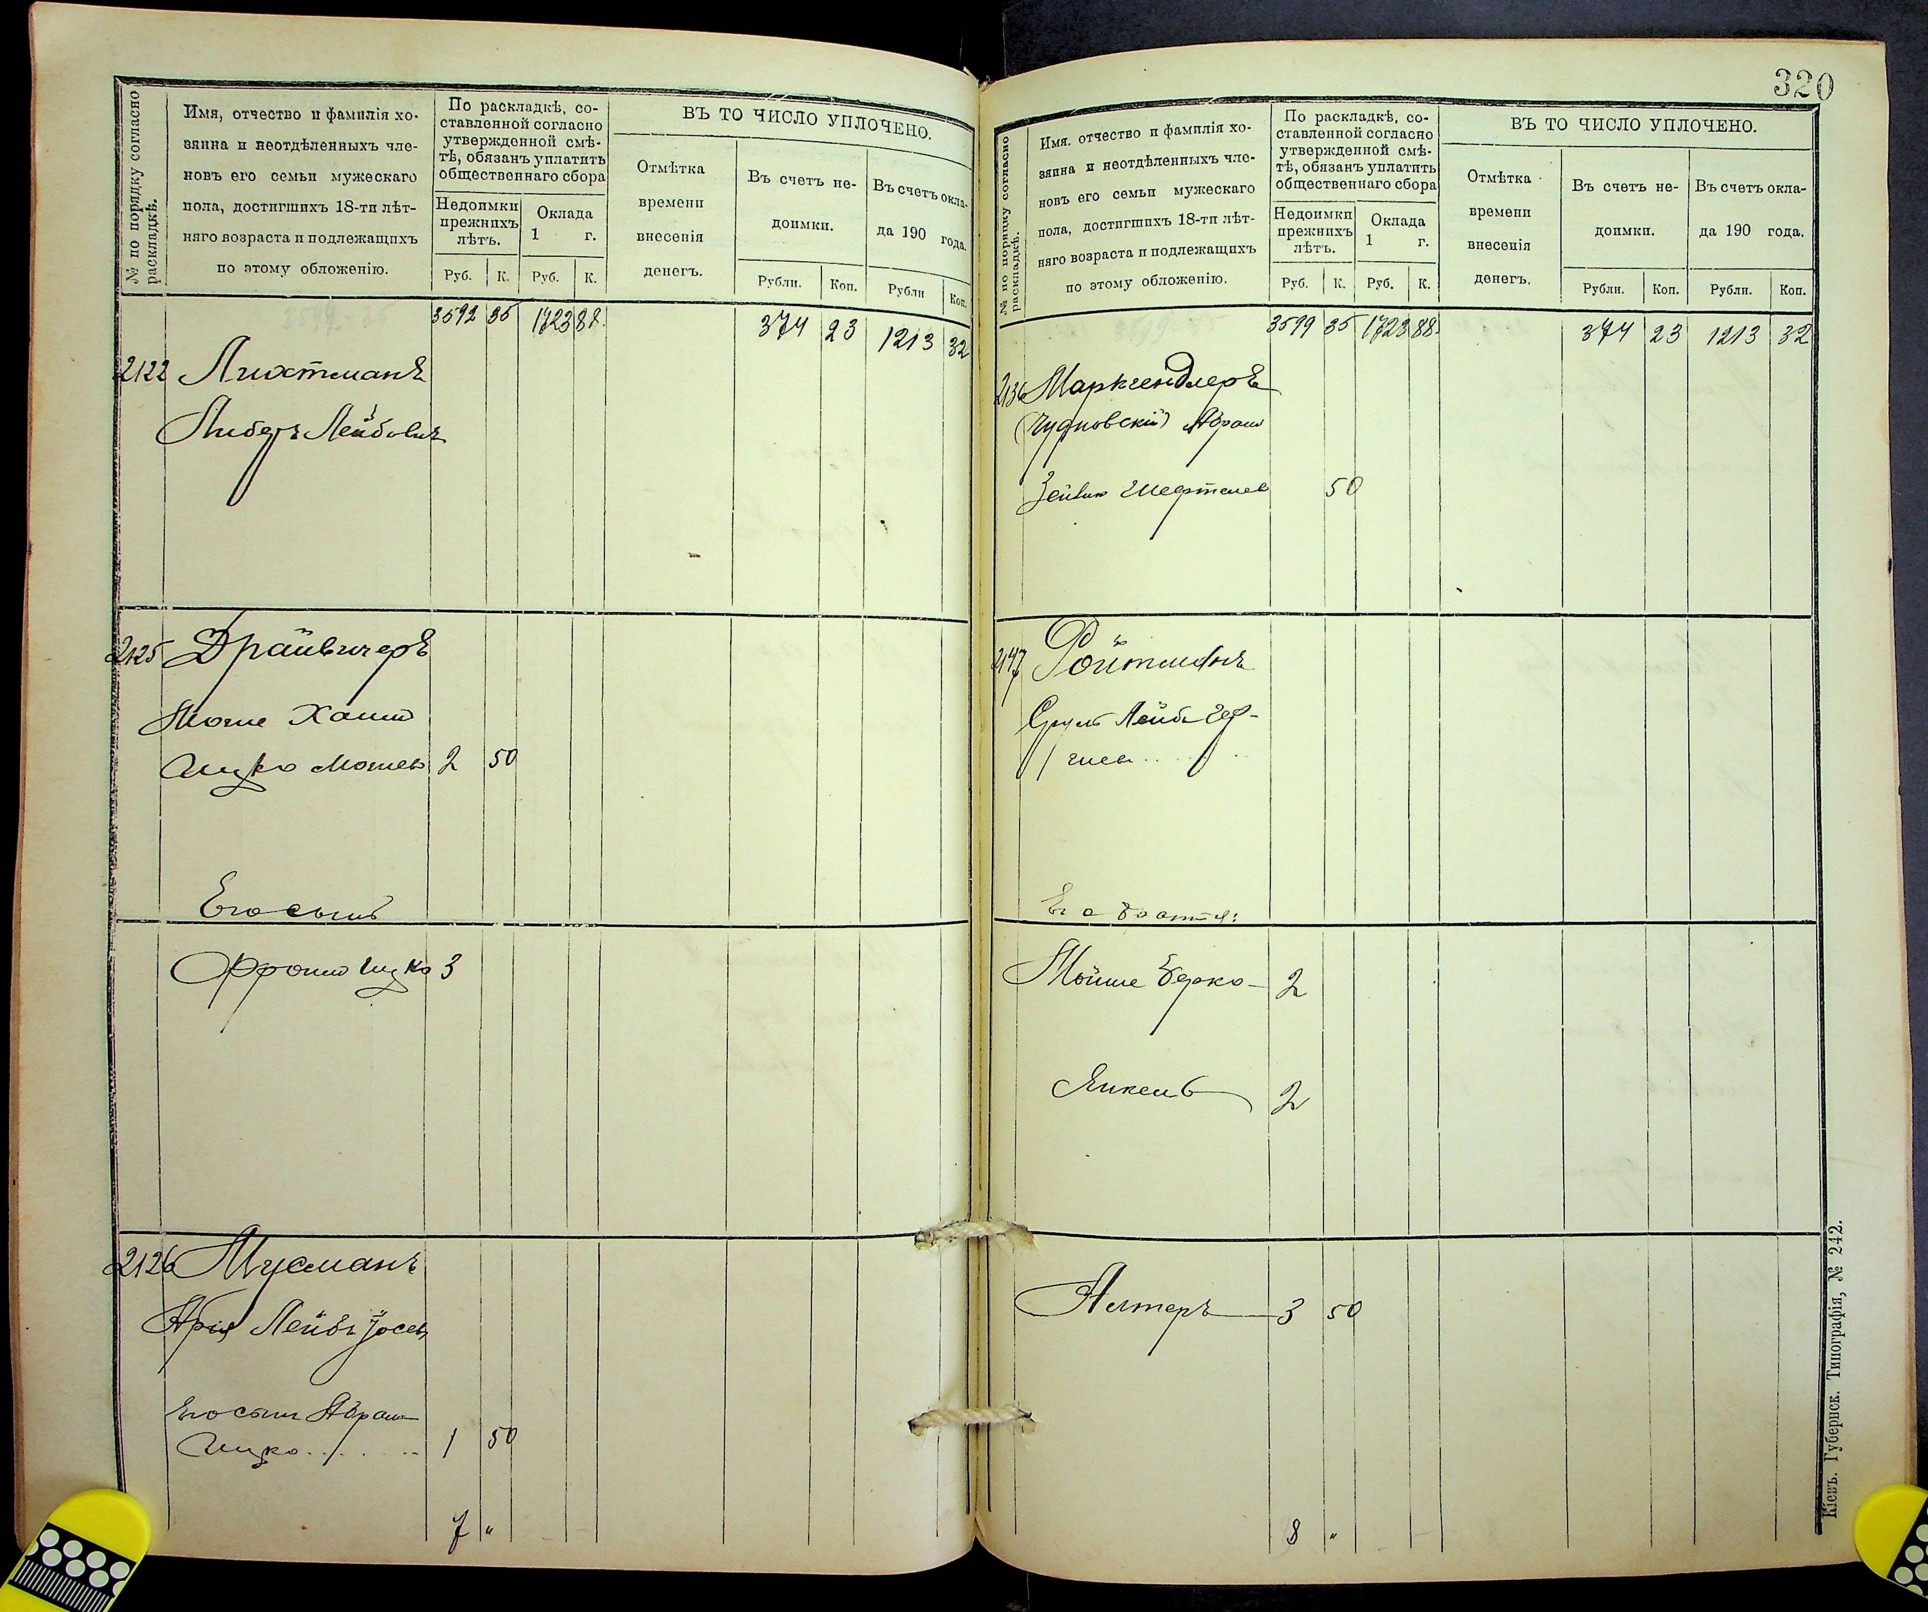 № по порядку согласно
раскладкѣ.
Имя, отчество и фамилія хо-
зяина и неотдѣленныхъ чле-
новъ его семьи мужескаго
пола, достигшихъ 18-ти лѣт-
няго возраста и подлежащихъ
по этому обложенію.
По раскладкѣ, со-
ставленной согласно
утвержденной смѣ-
тѣ, обязанъ уплатить
общественнаго сбора
Недоимки
прежнихъ
лѣтъ.
Оклада
1 г.
Руб. К. Руб. К.
ВЪ ТО ЧИСЛО УПЛОЧЕНО.
Отмѣтка
времени
внесенія
денегъ.
Въ счетъ не-
доимки.
Въ счетъ окла-
да 190 года.
Рубли. Коп. Рубли Коп.
3592 35 1723 88 374 23 1213 32
2122 Лихтманъ
Либеръ Лейбовичъ
2125 Драйвичеръ
Моше Хаимъ
Ицко Мошев 2 50
Его сынъ
Фроим Ицко 3
2126 Мусманъ
Арія Лейбъ Іосев
Его сынъ Абрам
Ицко 1 50
7 "
320
№ по порядку согласно
раскладкѣ.
Имя, отчество и фамилія хо-
зяина и неотдѣленныхъ чле-
новъ его семьи мужескаго
пола, достигшихъ 18-ти лѣт-
няго возраста и подлежащихъ
по этому обложенію.
По раскладкѣ, со-
ставленной согласно
утвержденной смѣ-
тѣ, обязанъ уплатить
общественнаго сбора
Недоимки
прежнихъ
лѣтъ.
Оклада
1 г.
Руб. К. Руб. К.
ВЪ ТО ЧИСЛО УПЛОЧЕНО.
Отмѣтка
времени
внесенія
денегъ.
Въ счетъ не-
доимки.
Въ счетъ окла-
да 190 года.
Рубли. Коп. Рубли. Коп.
3599 35 1723 88 374 23 1213 32
2136 Маргендлеръ
(Чудновскій) Абрам
Зейвик Шефтелев 50
2147 Ройтманъ
Сруль Лейба Гер-
Его братья:
Мойше Берко - 2
Янкель 2
Алтеръ 3 50
8 "
Кіевъ. Губернск. Типографія, № 242.